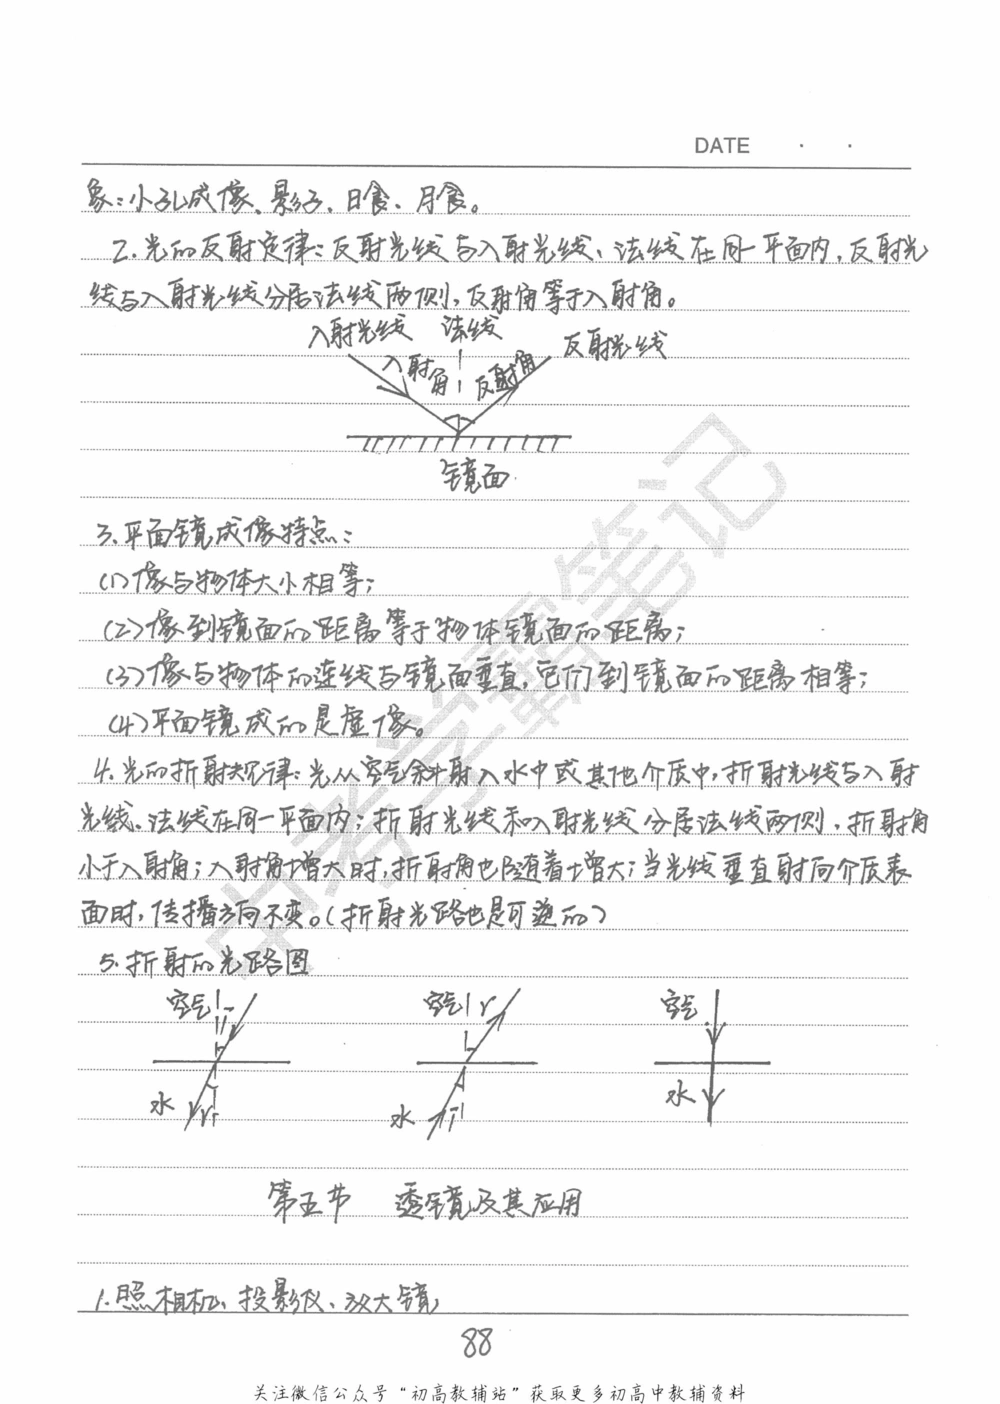 DATE · ·
象:小孔成像、影子、日食、月食。
2.光的反射定律:反射光线与入射光线、法线在同一平面内,反射光
线与入射光线分居法线两侧,反射角等于入射角。
入射光线 法线 反射光线
入射角 反射角
镜面
3.平面镜成像特点:
(1)像与物体大小相等;
(2)像到镜面的距离等于物体镜面的距离;
(3)像与物体的连线与镜面垂直,它们到镜面的距离相等;
(4)平面镜成的是虚像。
4.光的折射规律:光从空气斜射入水中或其他介质中,折射光线与入射
光线、法线在同一平面内;折射光线和入射光线分居法线两侧,折射角
小于入射角;入射角增大时,折射角也随着增大;当光线垂直射向介质表
面时,传播方向不变。(折射光路也是可逆的)
5.折射的光路图
空气 i 空气 r 空气
水 r 水 i 水
第五节 透镜及其应用
1.照相机、投影仪、放大镜
88
关注微信公众号“初高教辅站”获取更多初高中教辅资料
中考学霸笔记